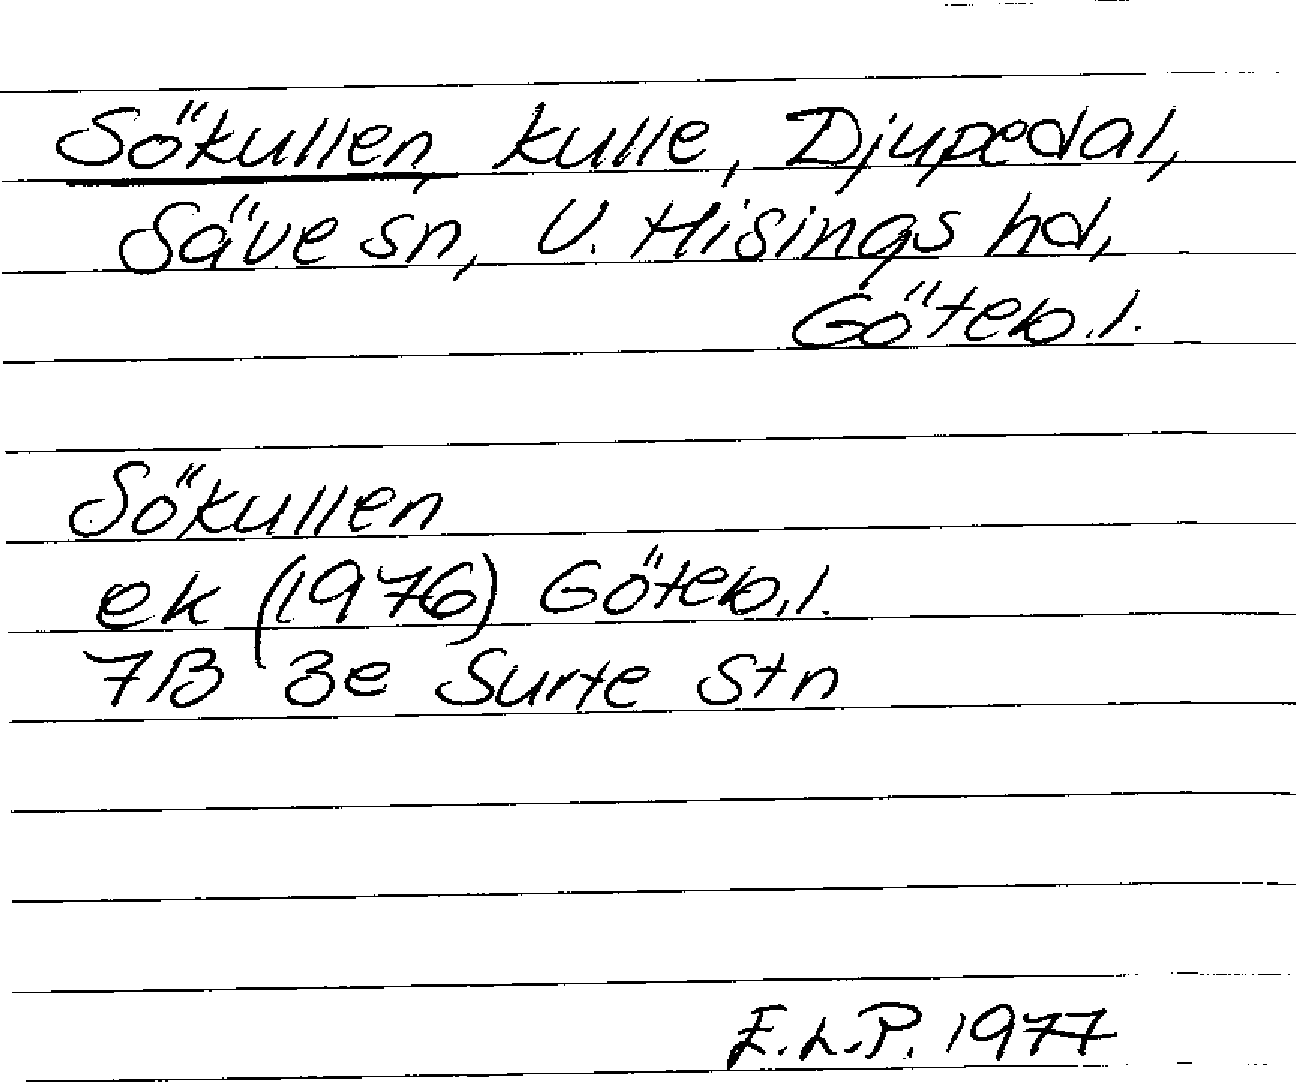 Sökullen, kulle, Djupedal,
Säve sn, V. Hisings hd,
Göteb.l.
Sökullen
ek (1976) Göteb.l.
7B 3e Surte Stn
E.L.P. 1977